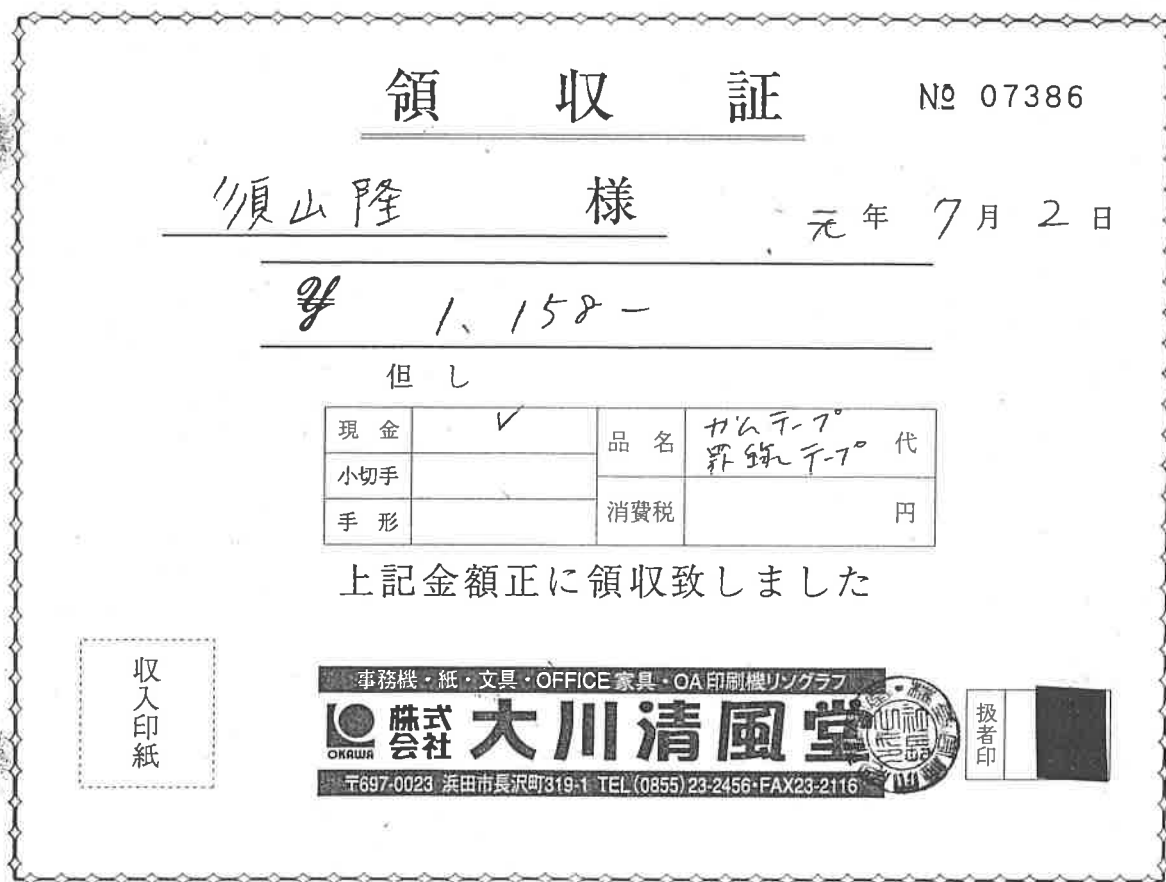 領収証
№ 07386
須山隆 様
元年 7月 2日
¥ 1、158-
但し
現金 ✓
小切手
手形
品名 ガムテープ
テープ 代
消費税 円
上記金額正に領収致しました
収入印紙
事務機・紙・文具・OFFICE家具・OA印刷機リソグラフ
OKAWA 株式会社 大川清風堂
〒697-0023 浜田市長沢町319-1 TEL(0855)23-2456・FAX23-2116
扱者印